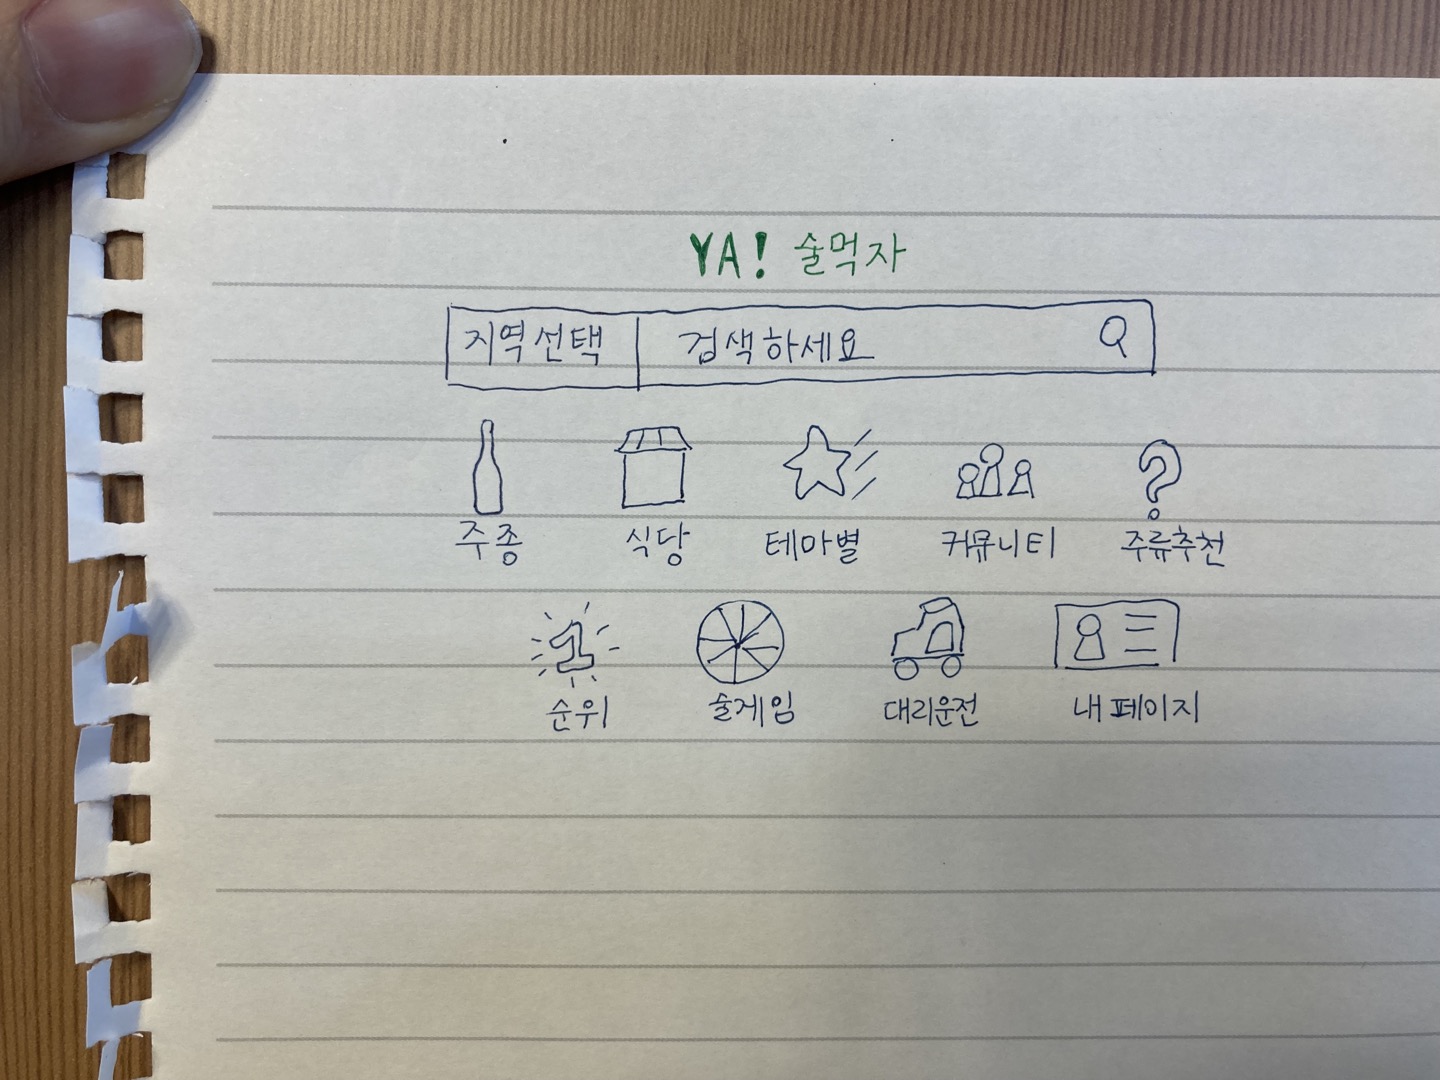 YA! 술먹자
지역선택 검색하세요
주종 식당 테마별 커뮤니티 주류추천
1
순위 술게임 대리운전 내 페이지